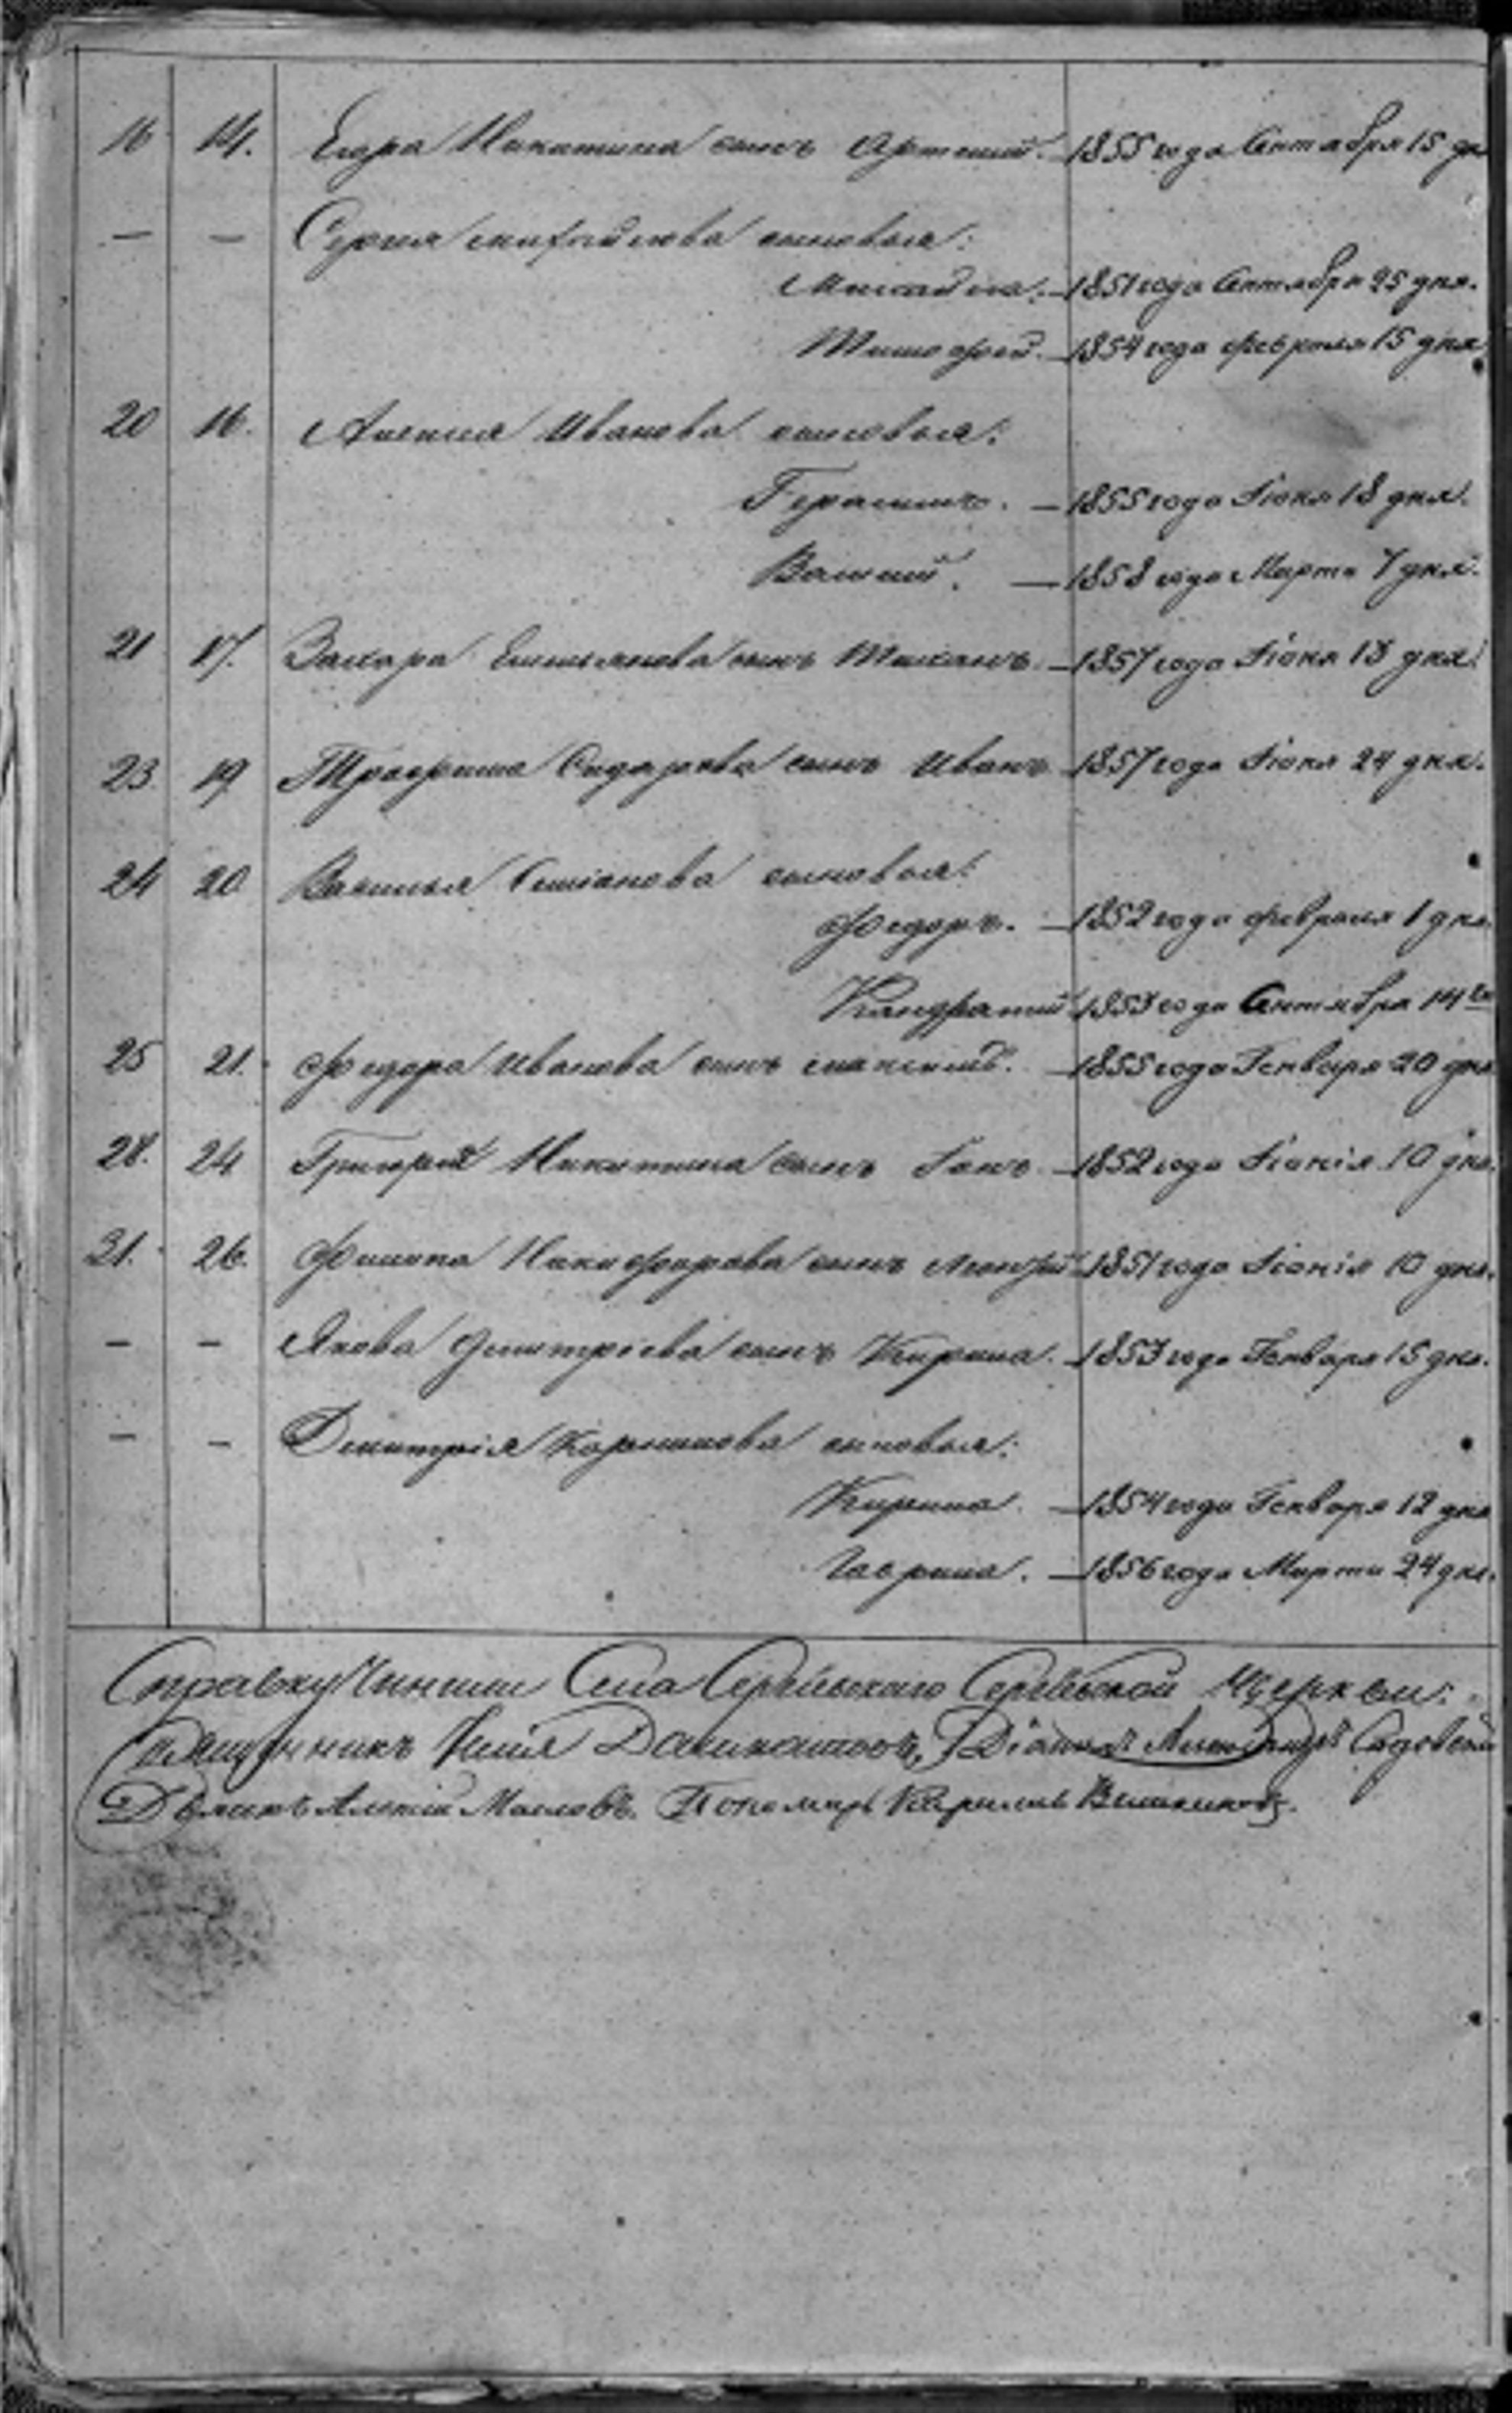 16 14. Егора Никитина сынъ Артемий. 1855 года Сентября 15 дн
— — Сергея Михайлова сыновья:
Михайла. 1851 года Сентября 25 дня.
Тимофей. 1854 года Февраля 15 дня
20 16. Алексея Иванова сыновья:
Герасимъ. — 1855 года Іюня 18 дня.
Василий. — 1858 года Марта 7 дня.
21 17. Захара Емельянова сынъ 1857 года Іюня 13 дня.
23. 19 Трофима Сидорова сынъ Иванъ 1857 года Іюня 24 дня.
24 20 Василья сыновья:
Федоръ. — 1852 года Февраля 1 дня.
Кандратий 1853 года Сентября 14
25 21. Федора Иванова сынъ Максимъ. 1855 года Генваря 20 дня
28. 24 Григорья Никитина сынъ 1852 года Іюнія 10 дня.
31. 26. Филипа Никифорова сынъ 1851 года Іюнія 10 дня.
— — Якова Дмитріева сынъ Кирила. 1853 года Генваря 15 дня.
— — Дмитрія сыновья:
Кирила. — 1854 года Генваря 12 дня
Гаврила. — 1856 года Марта 24 дня.
Справку чинили Села Церкви:
Священникъ Діаконъ
Дьячекъ Алексій Масловъ. Пономарь